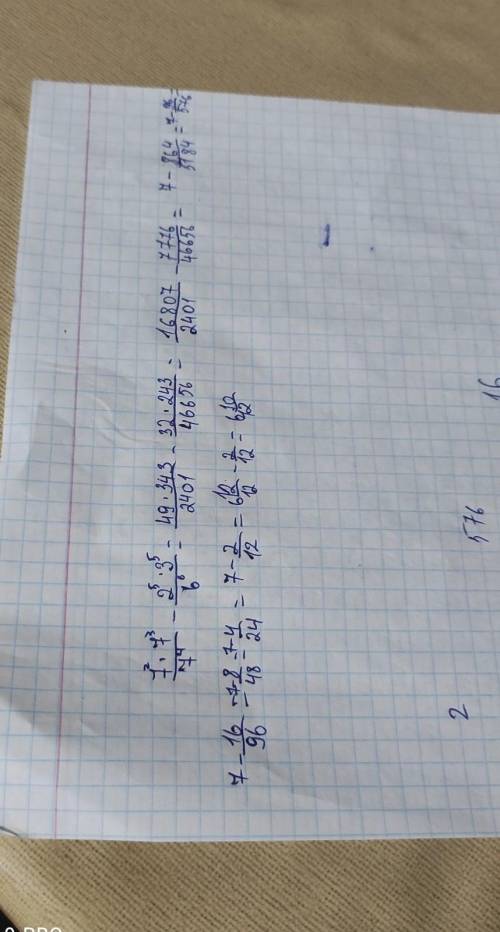 7²·7³/7⁴ - 2⁵·3⁵/6⁶ = 49·343/2401 - 32·243/46656 = 16807/2401 - 7776/46656 = 7 - 864/5184 = 7 - 96/576 =
7 - 16/96 = 7 - 8/48 = 7 - 4/24 = 7 - 2/12 = 6 12/12 - 2/12 = 6 10/12
2
576
16